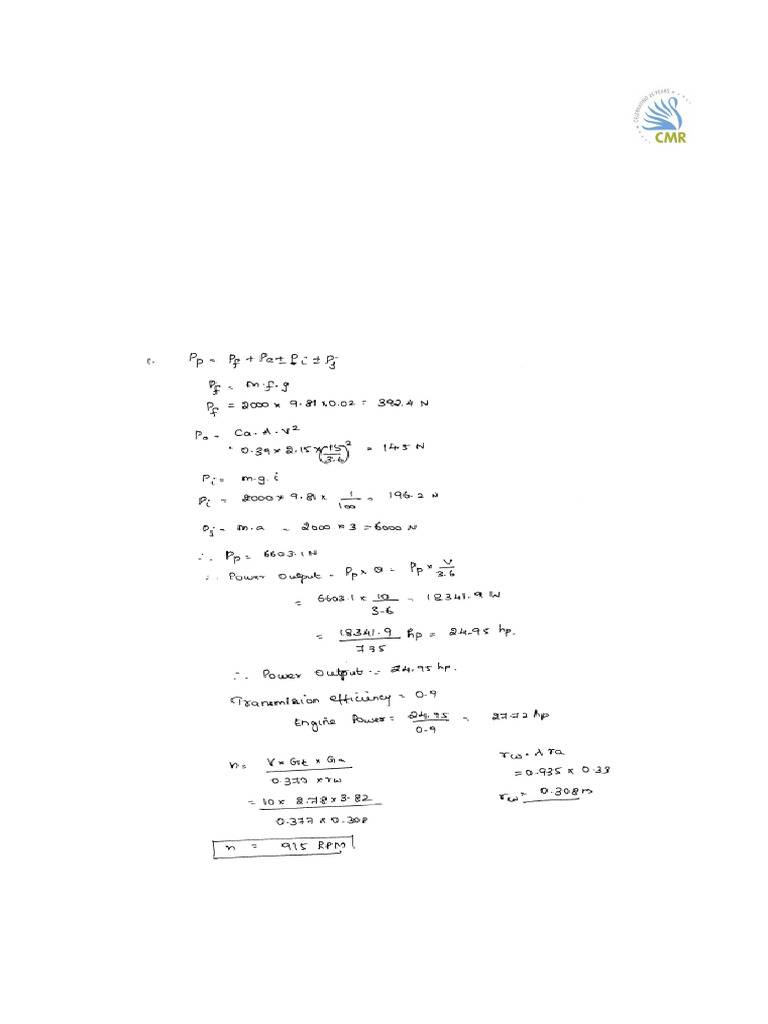 CELEBRATING 25 YEARS
CMR
c. Pp = Pf + Pa ± Pi ± Pj
Pf = m.f.g
Pf = 2000 × 9.81 × 0.02 = 392.4 N
Pa = Ca. A. V²
= 0.39 × 2.15 × (15/3.6)² = 14.5 N
Pi = m.g.i
Pi = 2000 × 9.81 × 1/100 = 196.2 N
Pj = m.a = 2000 × 3 = 6000 N
∴ Pp = 6603.1 N
∴ Power Output = Pp × θ = Pp × V/3.6
= 6603.1 × 10/3.6 = 18341.9 W
= 18341.9/735 hp = 24.95 hp.
∴ Power Output = 24.95 hp.
Transmision efficiency = 0.9
Engine Power = 24.95/0.9 = 27.72 hp
n = V × Gt × Ga / 0.377 × rw
= 10 × 2.78 × 3.82 / 0.377 × 0.308
n = 915 RPM
rw = λ ra
= 0.935 × 0.33
rw = 0.308 m